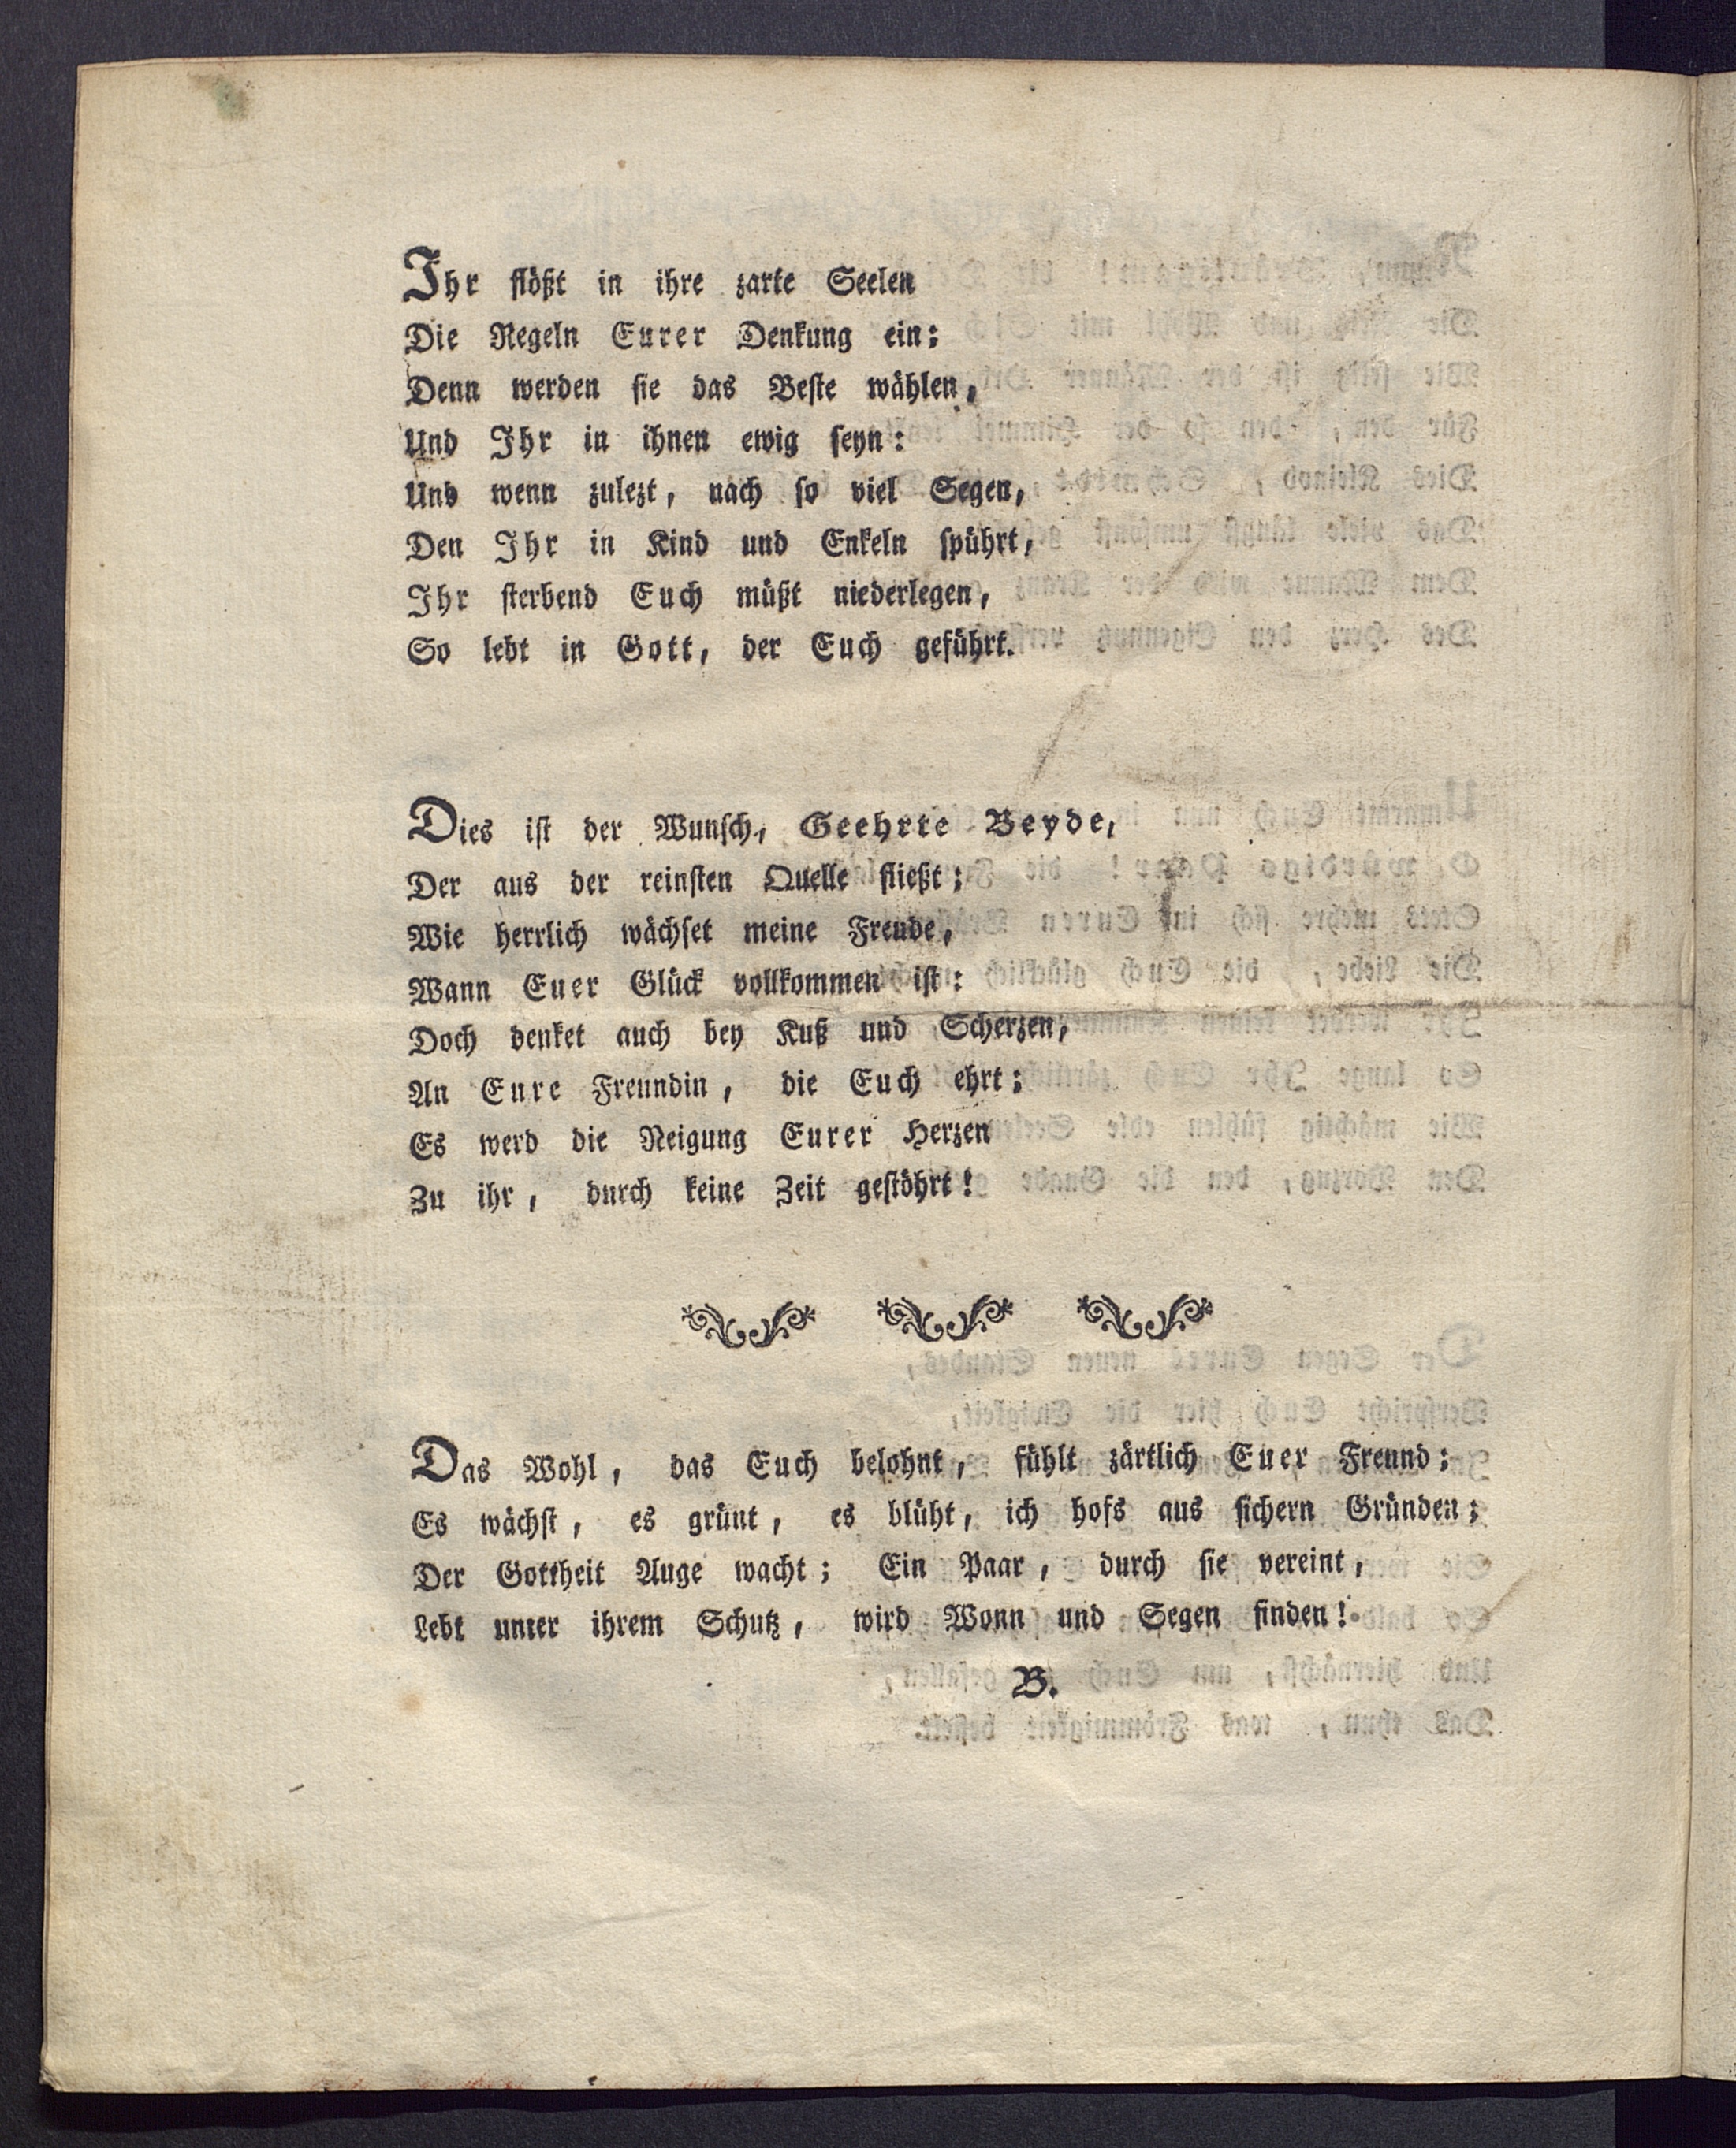 Ihr flößt in ihre zarte Seelen
Die Regeln Eurer Denkung ein:
Denn werden sie das Beste wählen,
Und Ihr in ihnen ewig seyn:
Und wenn zulezt, nach so viel Segen,
Den Ihr in Kind und Enkeln spührt,
Ihr sterbend Euch müßt niederlegen,
So lebt in Gott, der Euch geführt.
Dies ist der Wunsch, Geehrte Beyde,
Der aus der reinsten Quelle fließt;
Wie herrlich wächset meine Freude,
Wann Euer Glück vollkommen ist:
Doch denket auch bey Kuß und Scherzen,
An Eure Freundin, die Euch ehrt;
Es werd die Neigung Eurer Herzen
Zu ihr, durch keine Zeit gestöhrt!
Das Wohl, das Euch belohnt, fühlt zärtlich Euer Freund;
Es wächst, es grünt, es blüht, ich hofs aus sichern Gründen;
Der Gottheit Auge wacht; Ein Paar, durch sie vereint,
Lebt unter ihrem Schutz, wird Wonn und Segen finden!
B.